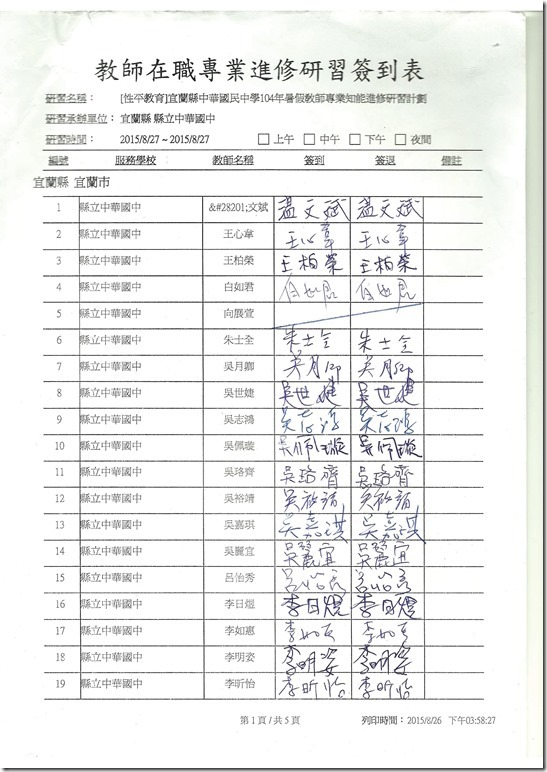 教師在職專業進修研習簽到表
研習名稱： [性平教育]宜蘭縣中華國民中學104年暑假教師專業知能進修研習計劃
研習承辦單位： 宜蘭縣 縣立中華國中
研習時間： 2015/8/27 ~ 2015/8/27 □ 上午 □ 中午 □ 下午 □ 夜間
編號 服務學校 教師名稱 簽到 簽退 備註
宜蘭縣 宜蘭市
1 縣立中華國中 &#28201;文斌 溫文斌 溫文斌
2 縣立中華國中 王心韋 王心韋 王心韋
3 縣立中華國中 王柏榮 王柏榮 王柏榮
4 縣立中華國中 白如君 白如君 白如君
5 縣立中華國中 向展萱
6 縣立中華國中 朱士全 朱士全 朱士全
7 縣立中華國中 吳月卿 吳月卿 吳月卿
8 縣立中華國中 吳世婕 吳世婕 吳世婕
9 縣立中華國中 吳志鴻 吳志鴻 吳志鴻
10 縣立中華國中 吳佩璇 吳佩璇 吳佩璇
11 縣立中華國中 吳珞齊 吳珞齊 吳珞齊
12 縣立中華國中 吳裕靖 吳裕靖 吳裕靖
13 縣立中華國中 吳嘉琪 吳嘉琪 吳嘉琪
14 縣立中華國中 吳麗宜 吳麗宜 吳麗宜
15 縣立中華國中 呂怡秀 呂怡秀 呂怡秀
16 縣立中華國中 李日焜 李日焜 李日焜
17 縣立中華國中 李如惠 李如惠 李如惠
18 縣立中華國中 李明姿 李明姿 李明姿
19 縣立中華國中 李昕怡 李昕怡 李昕怡
第 1 頁 / 共 5 頁 列印時間： 2015/8/26 下午03:58:27